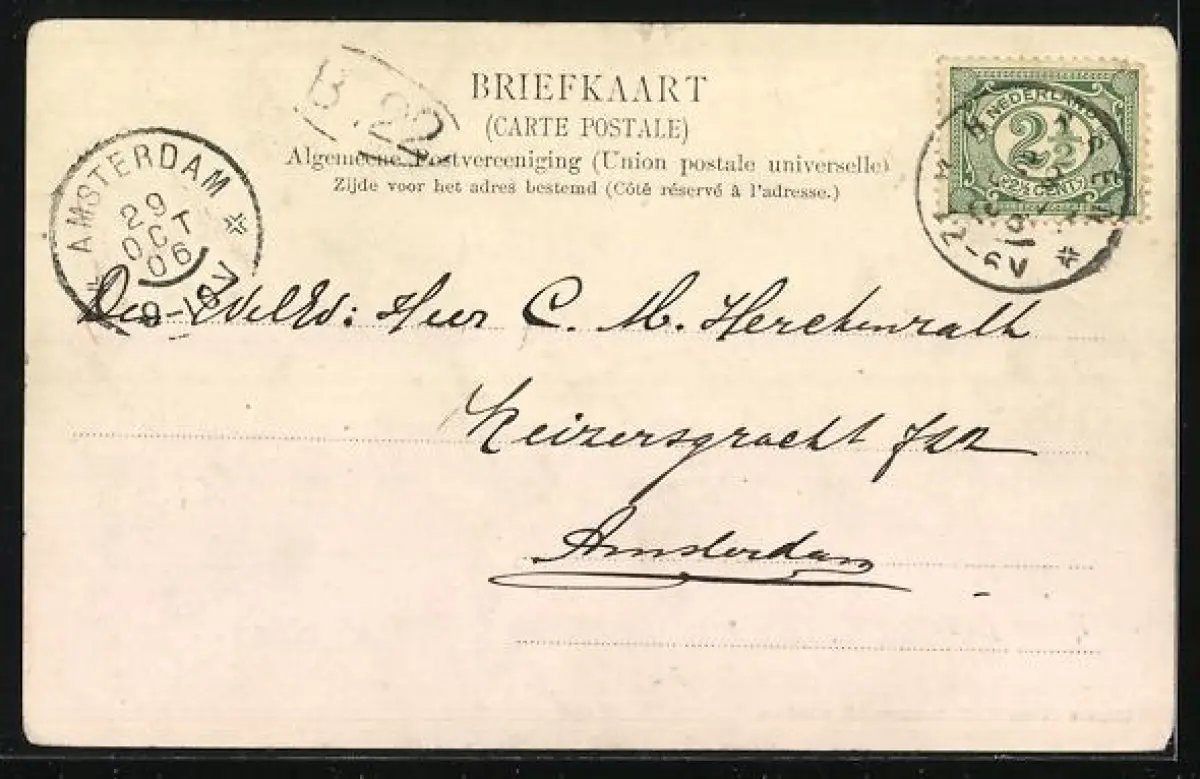 BRIEFKAART
(CARTE POSTALE)
Algemeene Postvereeniging (Union postale universelle)
Zijde voor het adres bestemd (Côté réservé à l'adresse.)
B 22
AMSTERDAM
29
OCT
06
8-10V
NEDERLAND
2½
2½ CENT
Heer C. M. Herckenrath
Keizersgracht
Amsterdam